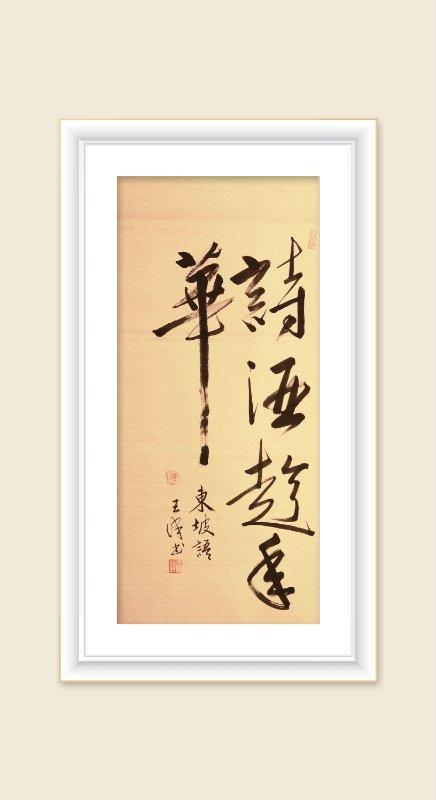 詩酒趁年
華
東坡語
王成书